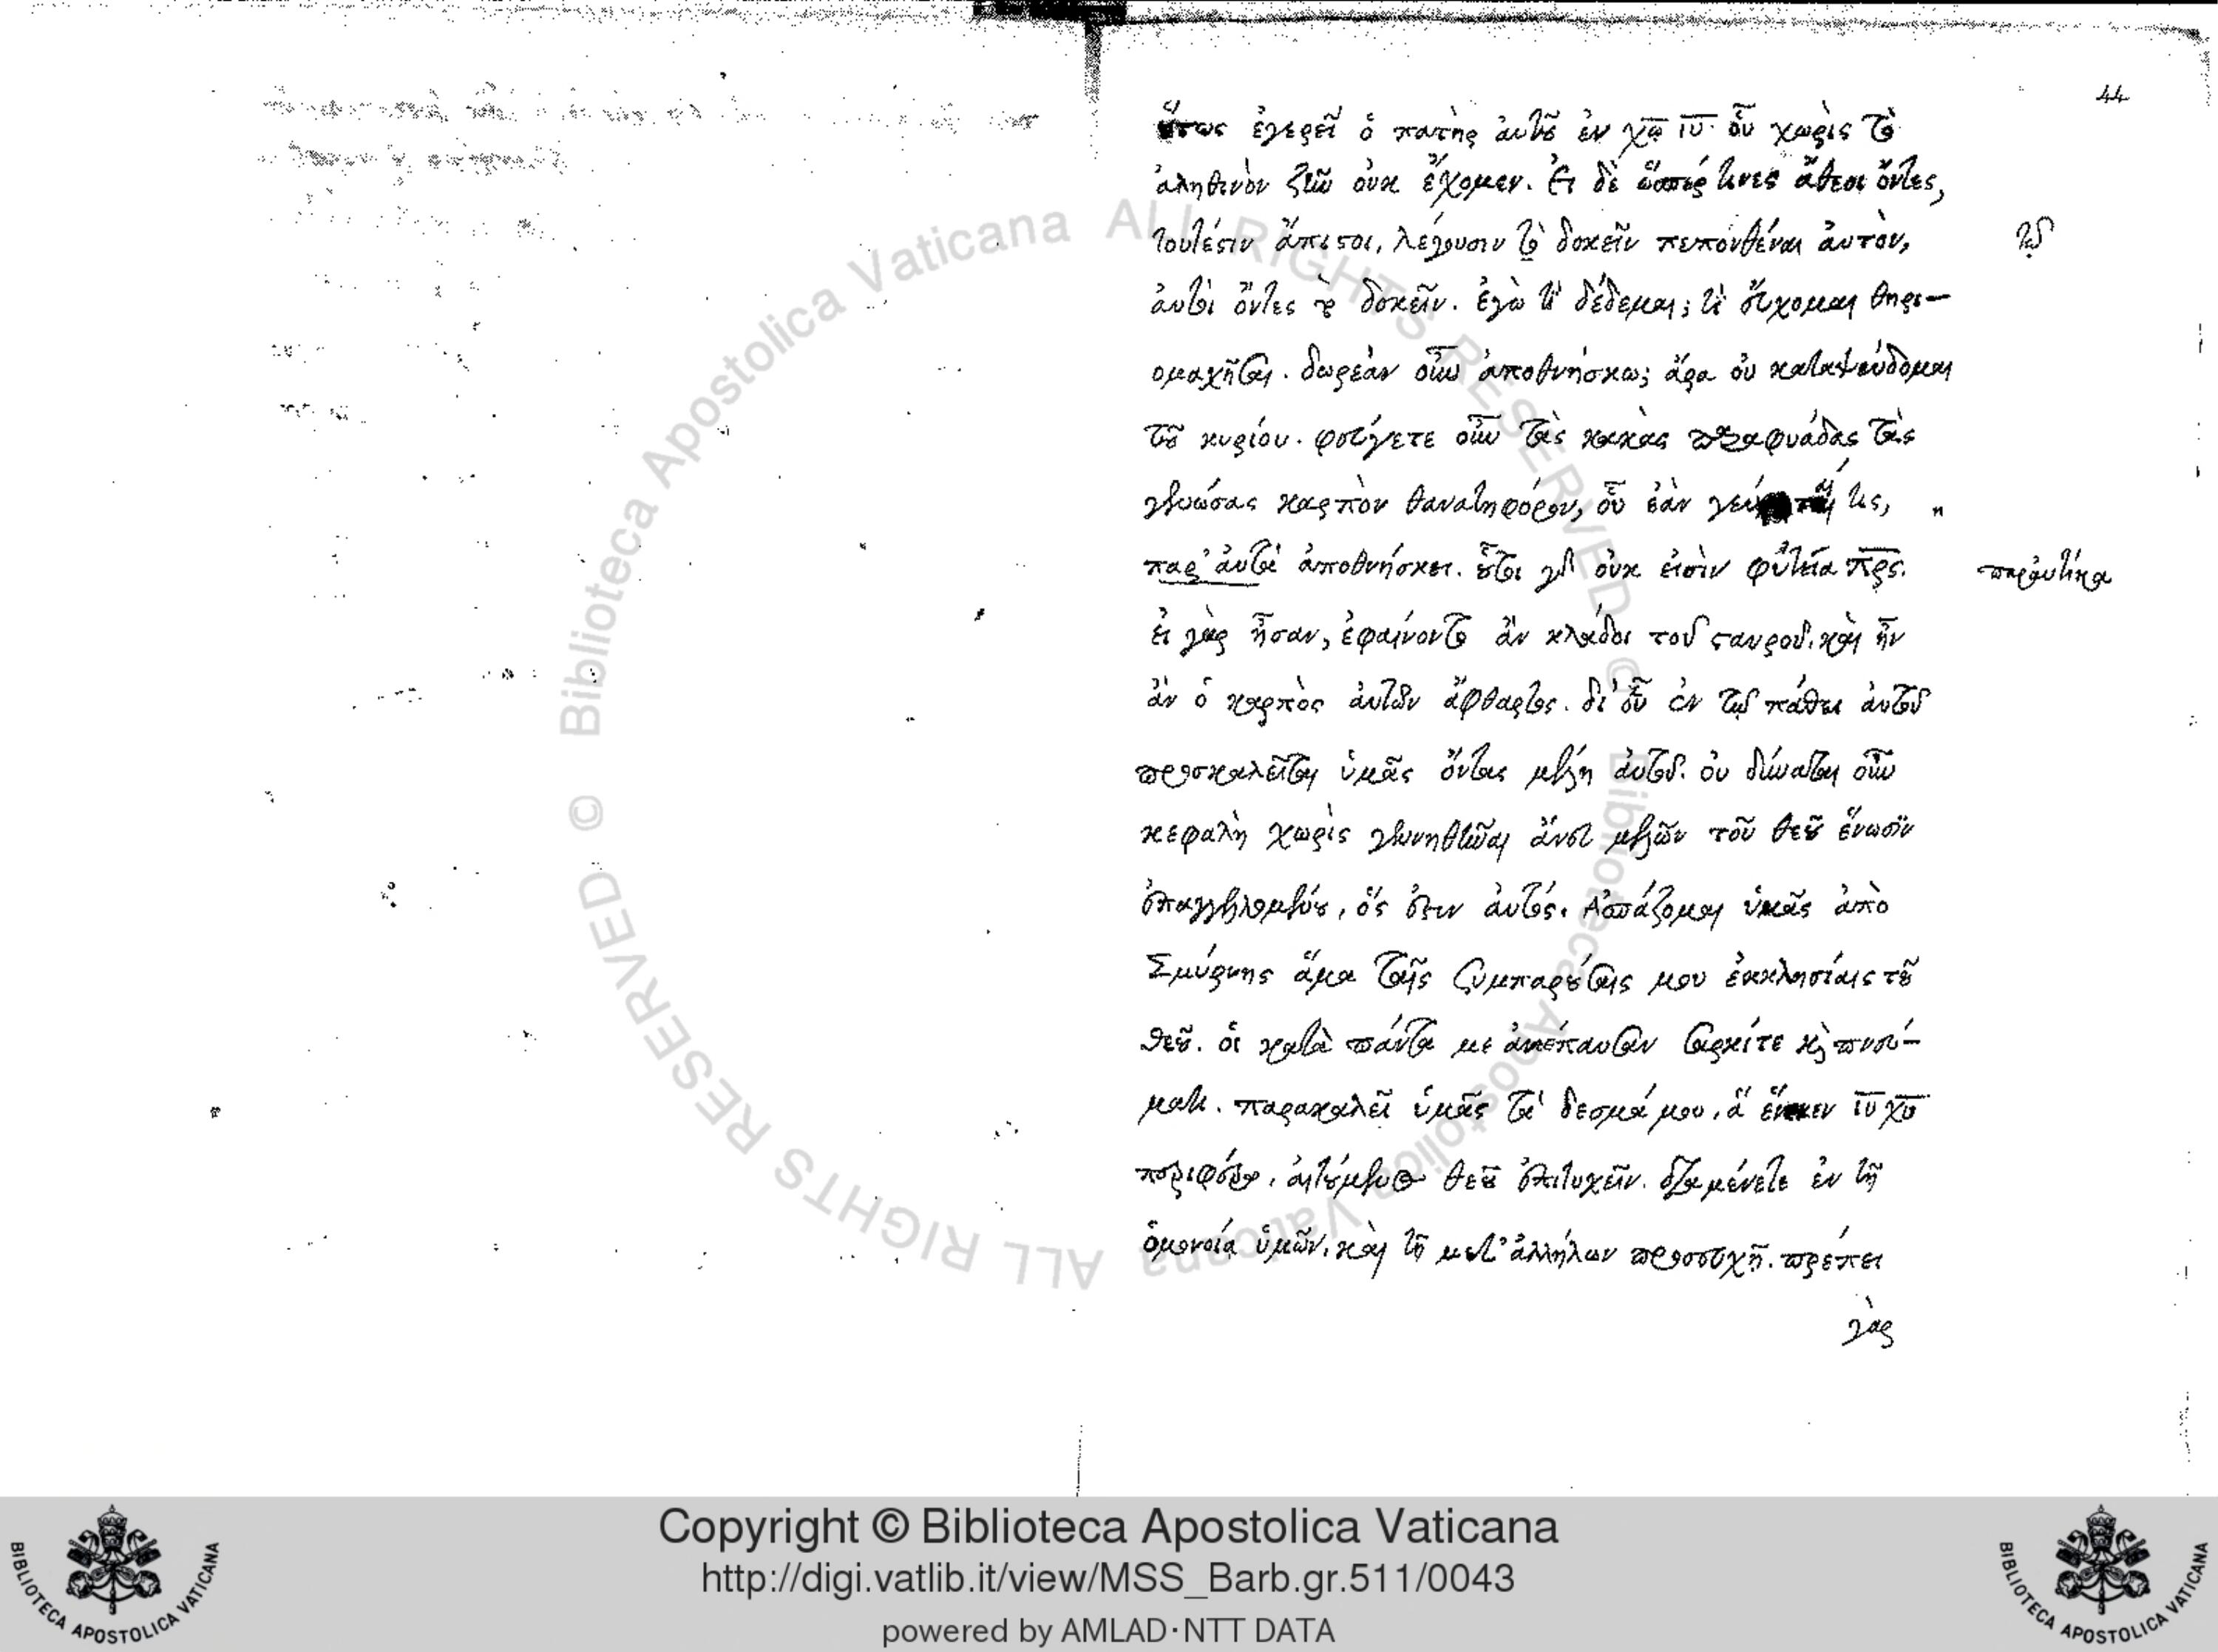 44
οὕτως ἐγερεῖ ὁ πατὴρ ἀυτοῦ ἐν χῷ ιυ. οὗ χωρὶς τὸ
ἀληθινὸν ζῆν οὐκ ἔχομεν. Ει δὲ ὥσπέρ τινες ἄθεοι ὄντες,
τουτέστιν ἄπιστοι, λέγουσιν τὸ δοκεῖν πεπονθέναι ἀυτὸν,
τῷ
ἀυτοὶ ὄντες τὸ δοκεῖν. ἐγὼ τί δέδεμαι; τί ἔυχομαι θηρι-
ομαχῆσαι. δωρεὰν οὖν ἀποθνήσκω; ἄρα οὐ καταψεύδομαι
τοῦ κυρίου. φεύγετε οὖν τὰς κακὰς παραφυάδας τὰς
γεννώσας καρπὸν θανατηφόρον, οὗ ἐὰν τις,
παρ' ἀυτὰ ἀποθνήσκει. οὗτοι γὰρ οὐκ εἰσὶν φυτεία πρς.
παραυτίκα
ἐι γὰρ ἦσαν, ἐφαίνοντο ἂν κλάδοι τοῦ σταυροῦ. καὶ ἦν
ἂν ὁ καρπὸς ἀυτῶν ἄφθαρτος. δι' οὗ ἐν τῷ πάθει ἀυτοῦ
προσκαλεῖται ὑμᾶς ὄντας μέλη ἀυτοῦ. οὐ δύναται οὖν
κεφαλὴ χωρὶς γεννηθῆναι ἄνευ μελῶν τοῦ θεοῦ ἕνωσιν
ἐπαγγελλομένου, ὅς ἐστιν ἀυτός. Ἀσπάζομαι ὑμᾶς ἀπὸ
Σμύρνης ἅμα ταῖς συμπαρούσαις μου ἐκκλησίαις τοῦ
θεοῦ. οἳ κατὰ πάντα με ἀνέπαυσαν σαρκί τε καὶ πνεύ-
ματι. παρακαλεῖ ὑμᾶς τὰ δεσμά μου, ἃ ἕνεκεν ιυ χυ
περιφέρω, ἀιτούμενος θεοῦ ἐπιτυχεῖν. διαμένετε ἐν τῇ
ὁμονοίᾳ ὑμῶν, καὶ τῇ μετ' ἀλλήλων προσευχῇ. πρέπει
γὰρ
Biblioteca Apostolica Vaticana ALL RIGHTS RESERVED ©
Biblioteca Apostolica Vaticana ALL RIGHTS RESERVED ©
Copyright © Biblioteca Apostolica Vaticana
http://digi.vatlib.it/view/MSS_Barb.gr.511/0043
powered by AMLAD·NTT DATA
BIBLIOTECA APOSTOLICA VATICANA
BIBLIOTECA APOSTOLICA VATICANA